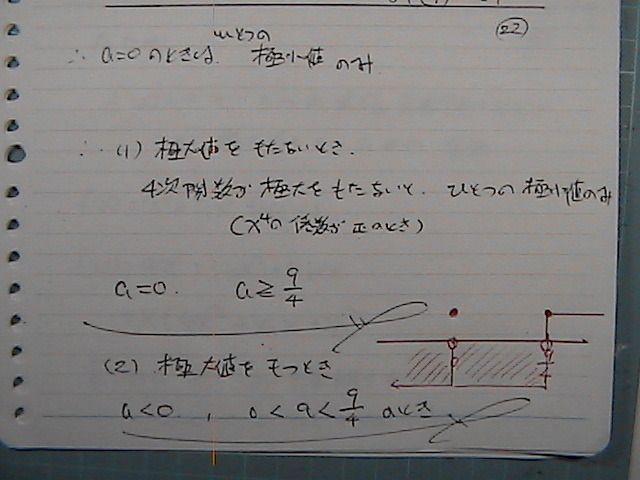 ∴ a=0のときは ひとつの 極小値 のみ
22
∴ (1) 極大値を もたないとき.
4次関数が 極大をもたないと、ひとつの 極小値のみ
(x⁴の 係数が 正のとき)
a=0. a≥9/4
(2) 極大値を もつとき
a<0 , 0<a<9/4 のとき